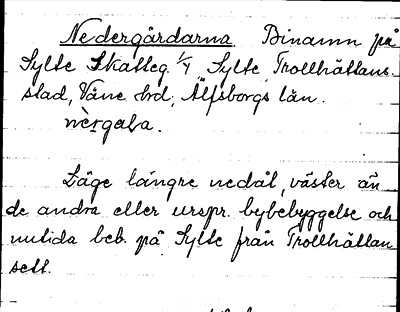 Nedergårdarna Binamn på
Sylte Skatteg. 1/4 Sylte Trollhättans
stad, Väne hrd, Älfsborgs län.
nẹrgaḷa.
Läge längre nedåt, väster än
de andra eller urspr. bybebyggelse och
nutida beb. på Sylte från Trollhättan
sett.